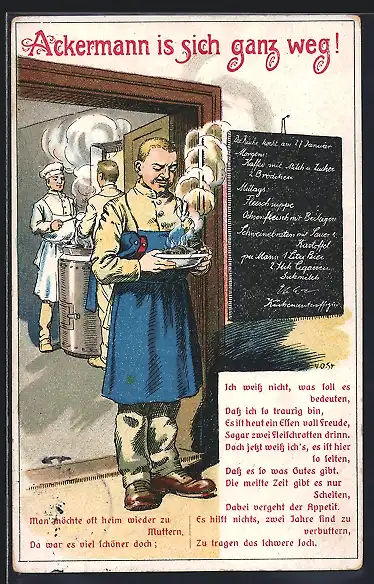 Ackermann is sich ganz weg!
Die Küche kocht am 27 Januar
Morgens:
Kaffee mit Milch u. Zucker
2 Brödchen
Mittags:
Fleischsuppe
Ochsenfleisch mit Beilagen
Schweinebraten mit Sauer u.
Kartoffel
pro Mann 1 Liter Bier
2 Stck Cigarren
V.O.St
Ich weiß nicht, was soll es
bedeuten,
Daß ich so traurig bin,
Es ist heut ein Essen voll Freude,
Sogar zwei Fleischrotten drinn.
Doch jetzt weiß ich's, es ist hier
so selten,
Daß es so was Gutes gibt.
Die meiste Zeit gibt es nur
Schelten,
Dabei vergeht der Appetit.
Man möchte oft heim wieder zu
Muttern,
Da war es viel schöner doch;
Es hilft nichts, zwei Jahre sind zu
verbuttern,
Zu tragen das schwere Joch.